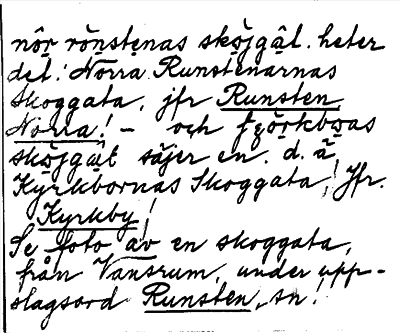 nör rönstenas sköjgat. heter
det: Norra Runstenarnas
Skoggata, jfr Runsten
Norra! - och
sköjgat säjer en. d. ä,
Kyrkbornas Skoggata, Jfr.
Kyrkby!
Se foto av en skoggata,
från Vansrum, under upp-
slagsord Runsten, sn!